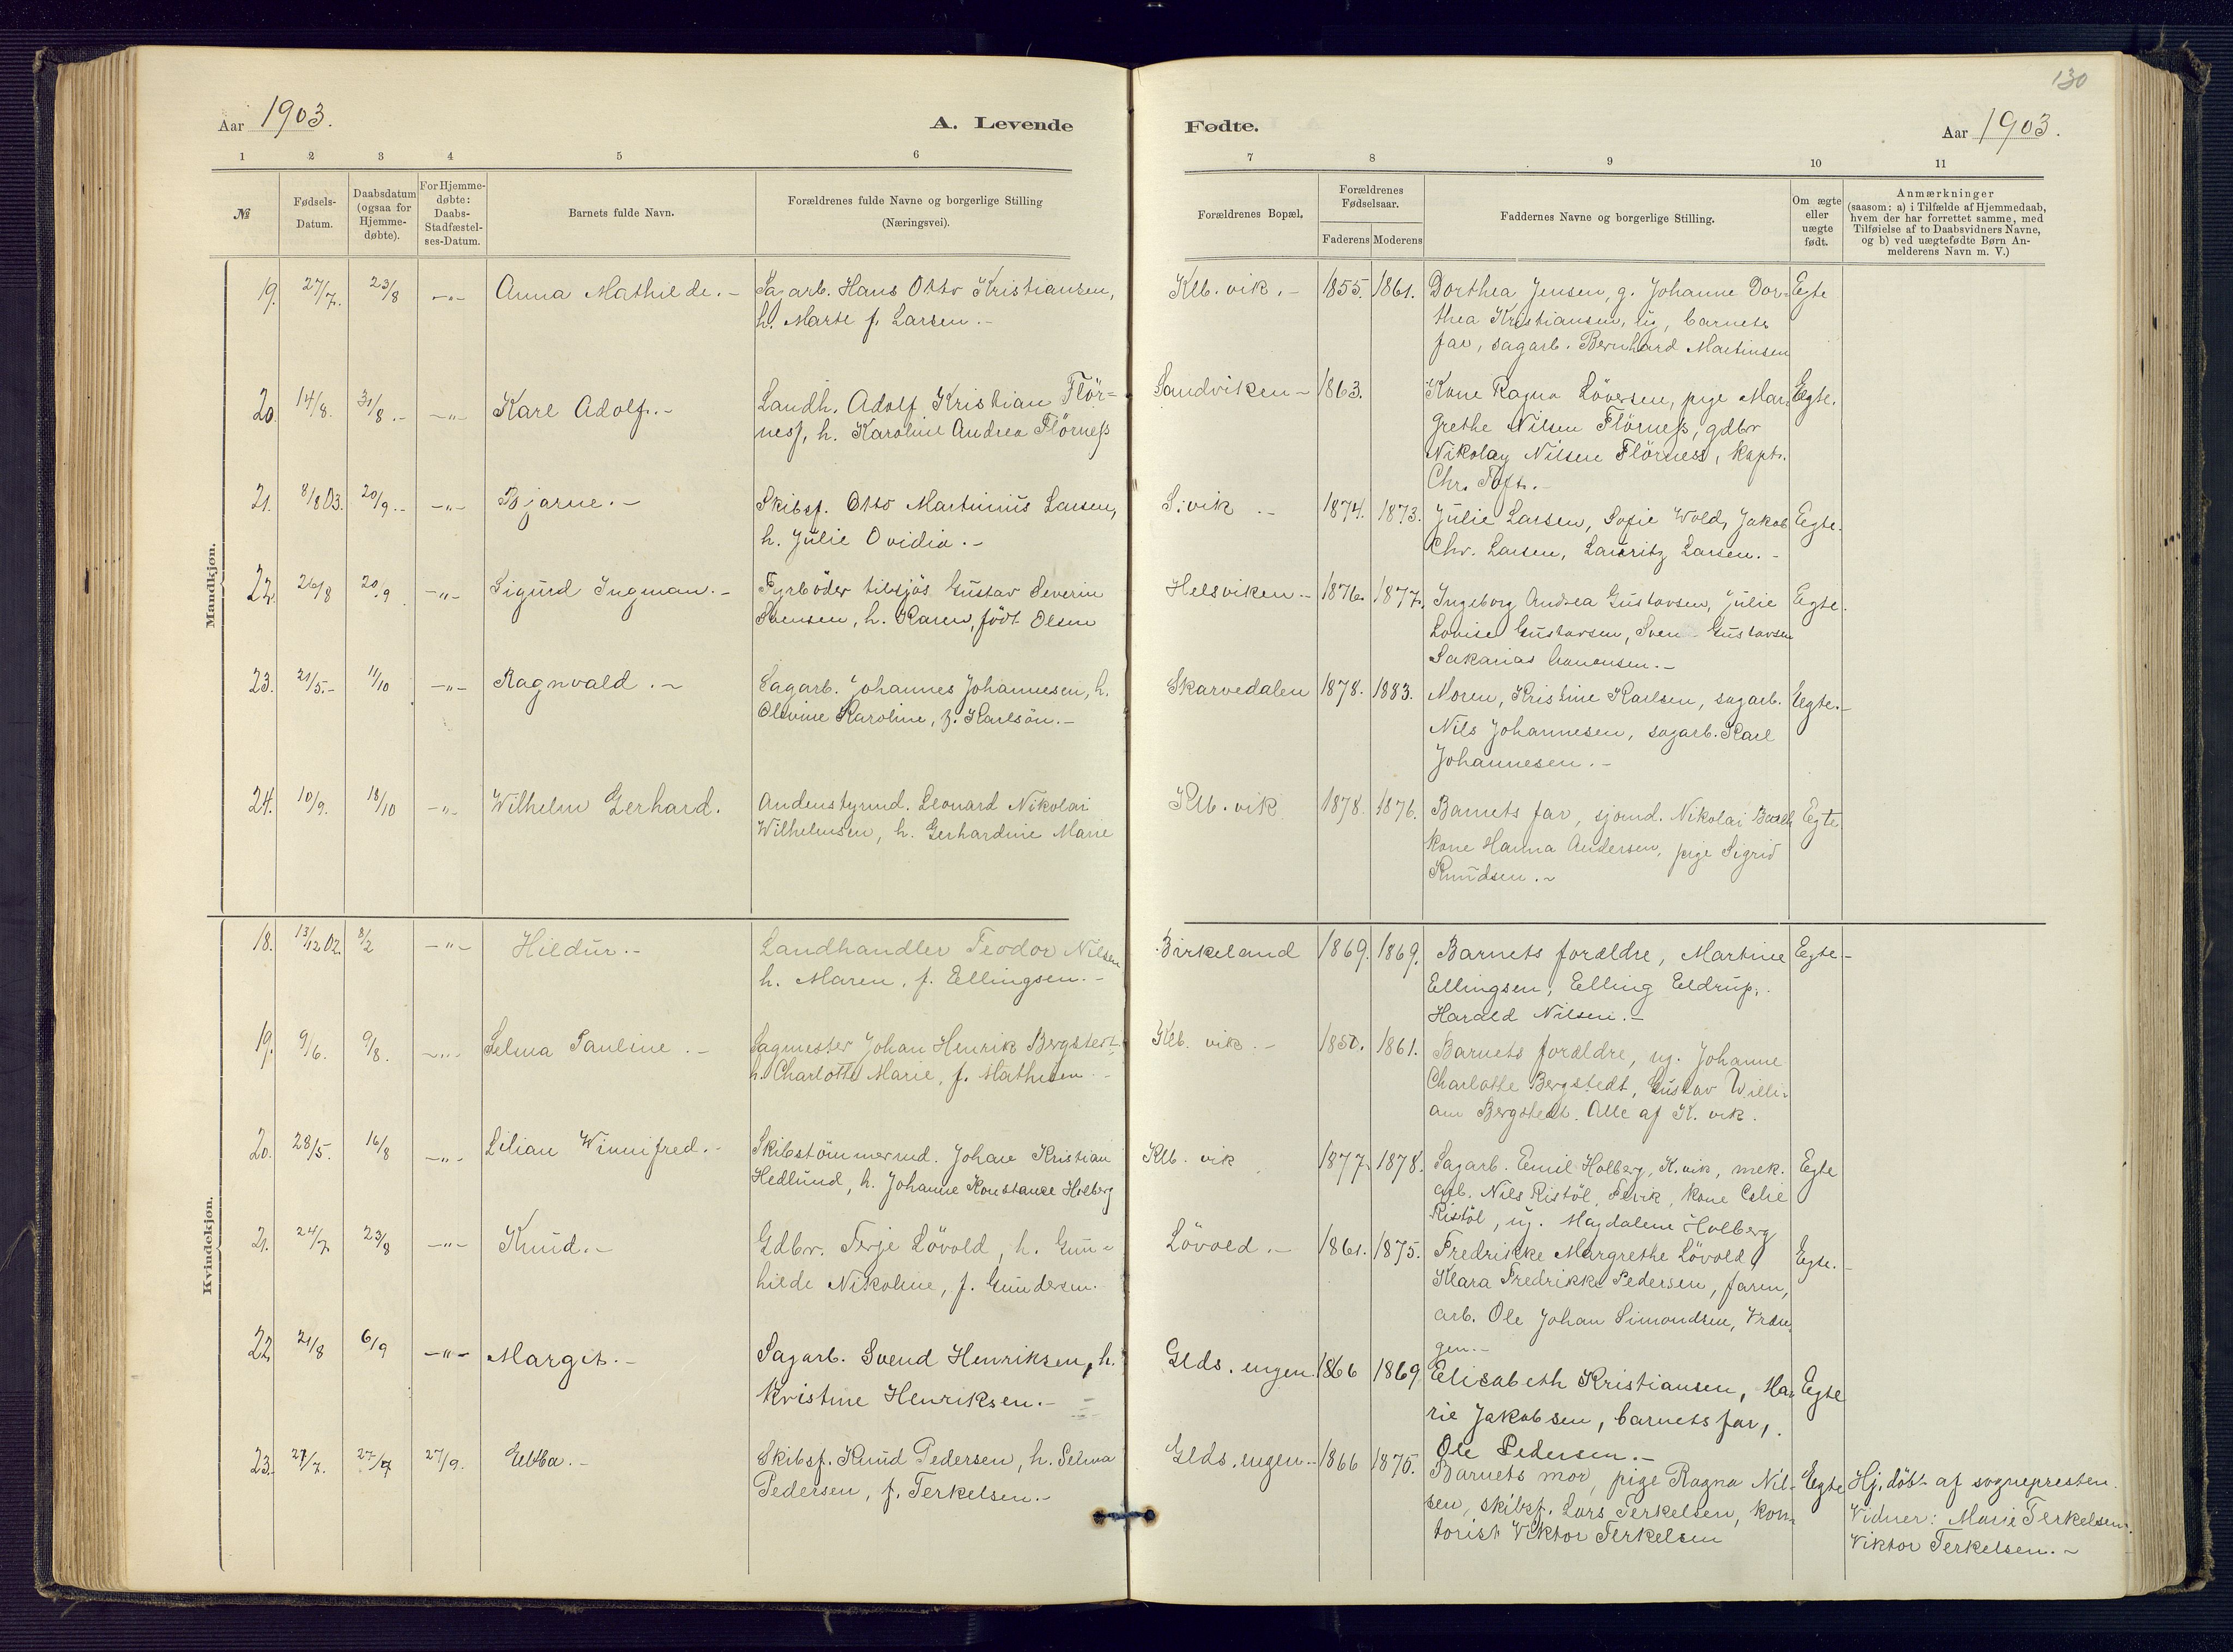 130
Aar 1903.
A. Levende
Fødte.
Aar 1903.
1 2 3 4 5 6 7 8 9 10 11
№
Fødsels-
Datum.
Daabsdatum
(ogsaa for
Hjemme-
døbte).
For Hjemme-
døbte:
Daabs-
Stadfæstel-
ses-Datum.
Barnets fulde Navn.
Forældrenes fulde Navne og borgerlige Stilling
(Næringsvei).
Forældrenes Bopæl.
Forældrenes
Fødselsaar.
Faderens Moderens
Faddernes Navne og borgerlige Stilling.
Om ægte
eller
uægte
født.
Anmærkninger
(saasom: a) i Tilfælde af Hjemmedaab,
hvem der har forrettet samme, med
Tilføielse af to Daabsvidners Navne,
og b) ved uægtefødte Børn An-
melderens Navn m. V.)
Mandkjøn.
19. 27/7. 23/8 -"- Anna Mathilde.- Sagarb. Hans Otto Kristiansen, Klb. vik.- 1855. 1861. Dorthea Jensen, g. Johanne Dor- Egte
h. Marte f. Larsen.- thea Kristiansen, ug, barnets
far, sagarb. Bernhard Martinsen
20. 14/8. 31/8.- -"- Karl Adolf.- Landh. Adolf Kristian Flör- Sandviken- 1863. Kone Ragna Löversen, pige Mar- Egte.
ness, h. Karoline Andrea Flörness grethe Nilsen Flörness, gdbr
Nikolay Nilsen Flörness, kapt.
Chr. Toft.-
21. 8/8 03. 20/9.- -"- Bjarne.- Skibsf. Otto Martinius Larsen, S.vik.- 1874. 1873. Julie Larsen, Sofie Wold, Jakob Egte.
h. Julie Ovidia.- Chr. Larsen, Lauritz Larsen.-
22. 26/8 20/9 -"- Sigurd Ingman.- Fyrböder tilsjös Gustav Severin Helsviken- 1876. 1877. Ingeborg Andrea Gustavsen, Julie Egte.
Svensen, h. Karen, födt Olsen Lovise Gustavsen, Sven Gustavsen
Sakarias
23. 21/5.- 11/10 -"- Ragnvald.- Sagarb. Johannes Johannesen, h. Skarvedalen 1878. 1883. Moren, Kristine Karlsen, sagarb. Egte.-
Olevine Karoline, f. Karlsön.- Nils Johannesen, sagarb. Karl
Johannesen.-
24. 10/9. 18/10 -"- Wilhelm Gerhard. Andenstyrmd. Leonard Nikolai Klb. vik 1878. 1876. Barnets far, sjömd. Nikolai Egte
Wilhelmsen, h. Gerhardine Marie kone Hanna Andersen, pige Sigrid
Knudsen.-
Kvindekjøn.
18. 13/12 02. 8/2 -"- Hildur.- Landhandler Teodor Nilsen Birkeland 1869. 1869. Barnets forældre, Martine Egte.-
h. Maren, f. Ellingsen.- Ellingsen, Elling Eldrup,
Harald Nilsen.-
19. 9/6. 9/8. -"- Selma Pauline.- Sagmester Johan Henrik Bergstedt, Klb. vik.- 1850. 1861. Barnets forældre, ug. Johanne
h. Charlotte Marie, f. Mathisen.- Charlotte Bergstedt, Gustav Willi-
am Bergstedt. Alle af K. vik.
20. 28/5. 16/8 -"- Lilian Winnifred.- Skibstömmermd. Johan Kristian Klb. vik 1877. 1878. Sagarb. Emil Holberg, K.vik, mek. Egte
Hedlund, h. Johanne Konstanse Holberg arb. Nils Ristöl, kone
Ristöl, ug. Magdalene Holberg
21. 24/7. 23/8 -"- Knud.- Gdbr. Terje Lövold, h. Gun- Lövold.- 1861. 1875. Fredrikke Margrethe Lövold, Egte.-
hilde Nikoline, f. Gundersen. Klara Fredrikke Pedersen, faren,
arb. Ole Johan Simondsen, Vran-
gen.-
22. 21/8 6/9 -"- Margit.- Sagarb. Svend Henriksen, h. Glds. engen. 1866 1869 Elisabeth Kristiansen, Ma- Egte
Kristine Henriksen.- rie Jakobsen, barnets far,
Ole Pedersen.-
23.- 27/7. 27/7 27/9. Ebba.- Skibsf. Knud Pedersen, h. Selma Glds. engen.- 1866 1875. Barnets mor, pige Ragna Nil- Egte Hj. döbt af sognepresten.
Pedersen, f. Terkelsen.- sen, skibsf. Lars Terkelsen, kon- Vidner: Marie Terkelsen.
torist Viktor Terkelsen Viktor Terkelsen.-